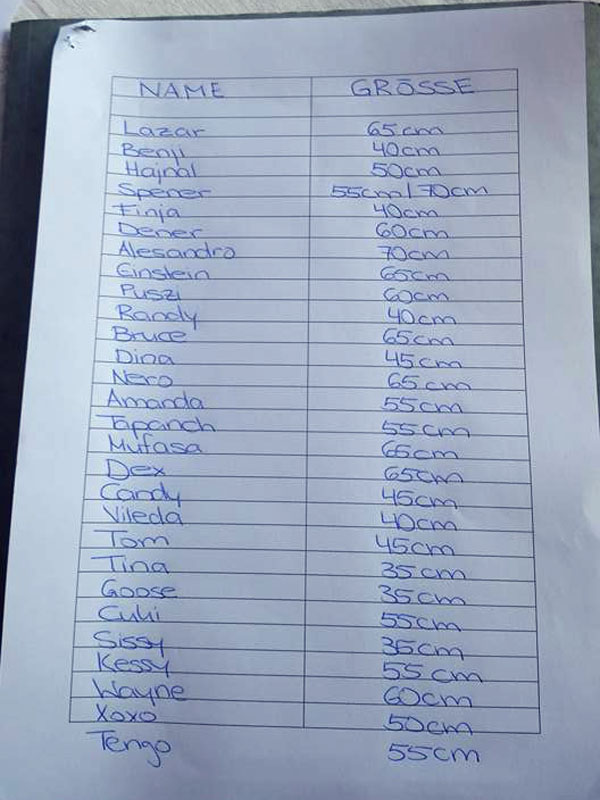 NAME GRÖSSE
Lazar 65cm
Benji 40cm
Hajnal 50cm
Spener 55cm/70cm
Finja 40cm
Dener 60cm
Alesandro 70cm
Einstein 65cm
Puszi 60cm
Randy 40cm
Bruce 65cm
Dina 45cm
Nero 65cm
Amanda 55cm
Tapanch 55cm
Mufasa 65cm
Dex 65cm
Candy 45cm
Vileda 40cm
Tom 45cm
Tina 35cm
Goose 35cm
Cuki 55cm
Sissy 35cm
Kessy 55cm
Wayne 60cm
Xoxo 50cm
Tengo 55cm